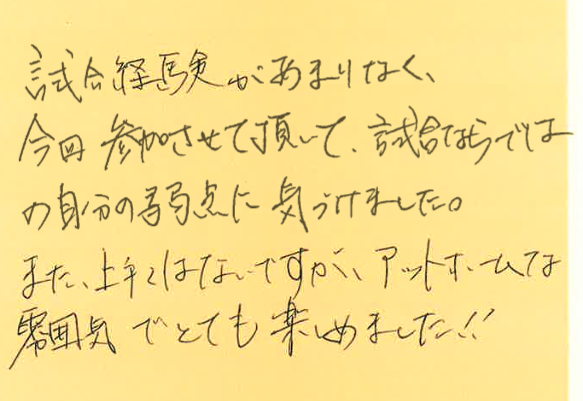 試合経験があまりなく、
今回参加させて頂いて、試合ならでは
の自分の弱点に気づけました。
また、上手くはないですが、アットホームな
雰囲気でとても楽しめました!!